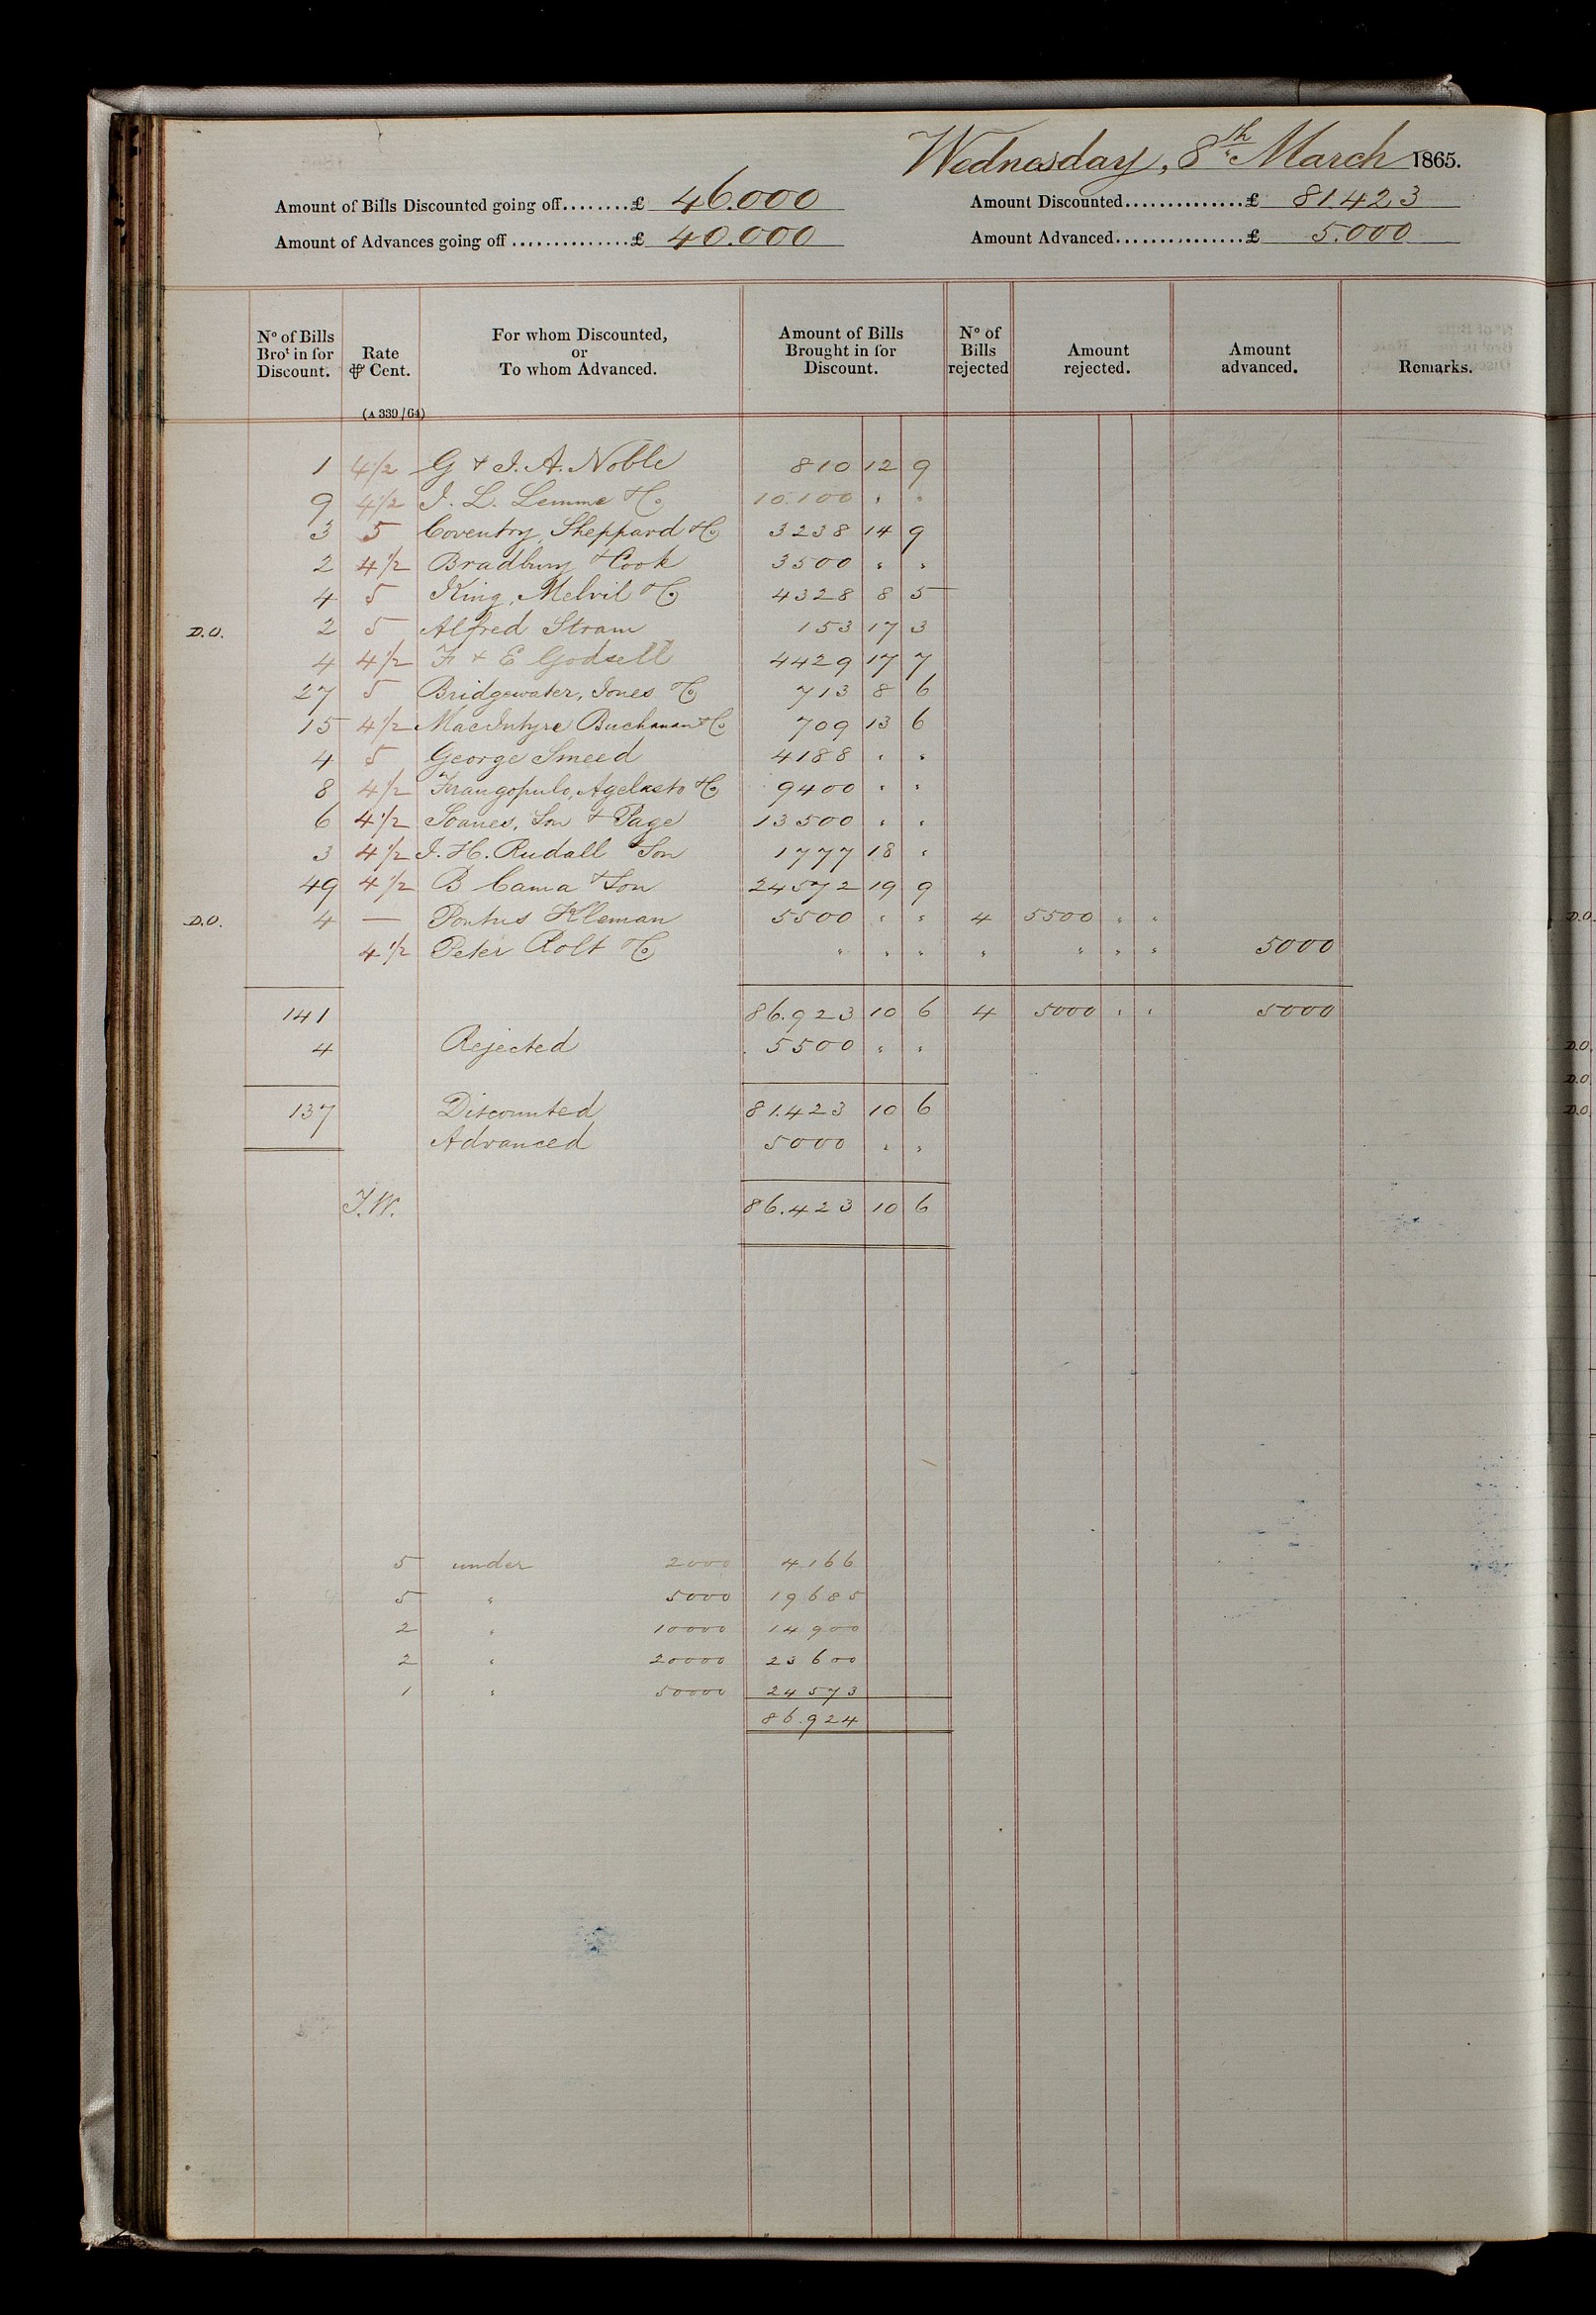 Wednesday, 8th March 1865.
Amount of Bills Discounted going off........£ 46.000 Amount Discounted...............£ 81.423
Amount of Advances going off..............£ 40.000 Amount Advanced................£ 5.000
No of Bills Brot in for Discount. Rate ⅌ Cent. For whom Discounted, or To whom Advanced. Amount of Bills Brought in for Discount. No of Bills rejected Amount rejected. Amount advanced. Remarks.
(A 339/64)
1 4½ G & J. A. Noble 810 12 9
9 4½ J. L. Lemme & Co 10.100 " "
3 5 Coventry, Sheppard & Co 3238 14 9
2 4½ Bradbury & Cook 3500 " "
4 5 King, Melvil & Co 4328 8 5
D.O. 2 5 Alfred Stram 153 17 3
4 4½ F & E Godsell 4429 17 7
27 5 Bridgewater, Jones & Co 713 8 6
15 4½ MacIntyre Buchanan & Co 709 13 6
4 5 George Smeed 4188 " "
8 4½ Frangopulo, Agelasto & Co 9400 " "
6 4½ Soanes, Son & Page 13500 " "
3 4½ J. H. Rudall & Son 1777 18 "
49 4½ B Cama & Son 24572 19 9
D.O. 4 — Pontus Kleman 5500 " " 4 5500 " " D.O.
4½ Peter Rolt & Co " " " " " " " 5000
141 86.923 10 6 4 5000 " " 5000
4 Rejected 5500 " " D.O.
D.O.
137 Discounted 81.423 10 6 D.O.
Advanced 5000 " "
J.W. 86.423 10 6
5 under 2000 4166
5 " 5000 19685
2 " 10000 14900
2 " 20000 23600
1 " 50000 24573
86.924